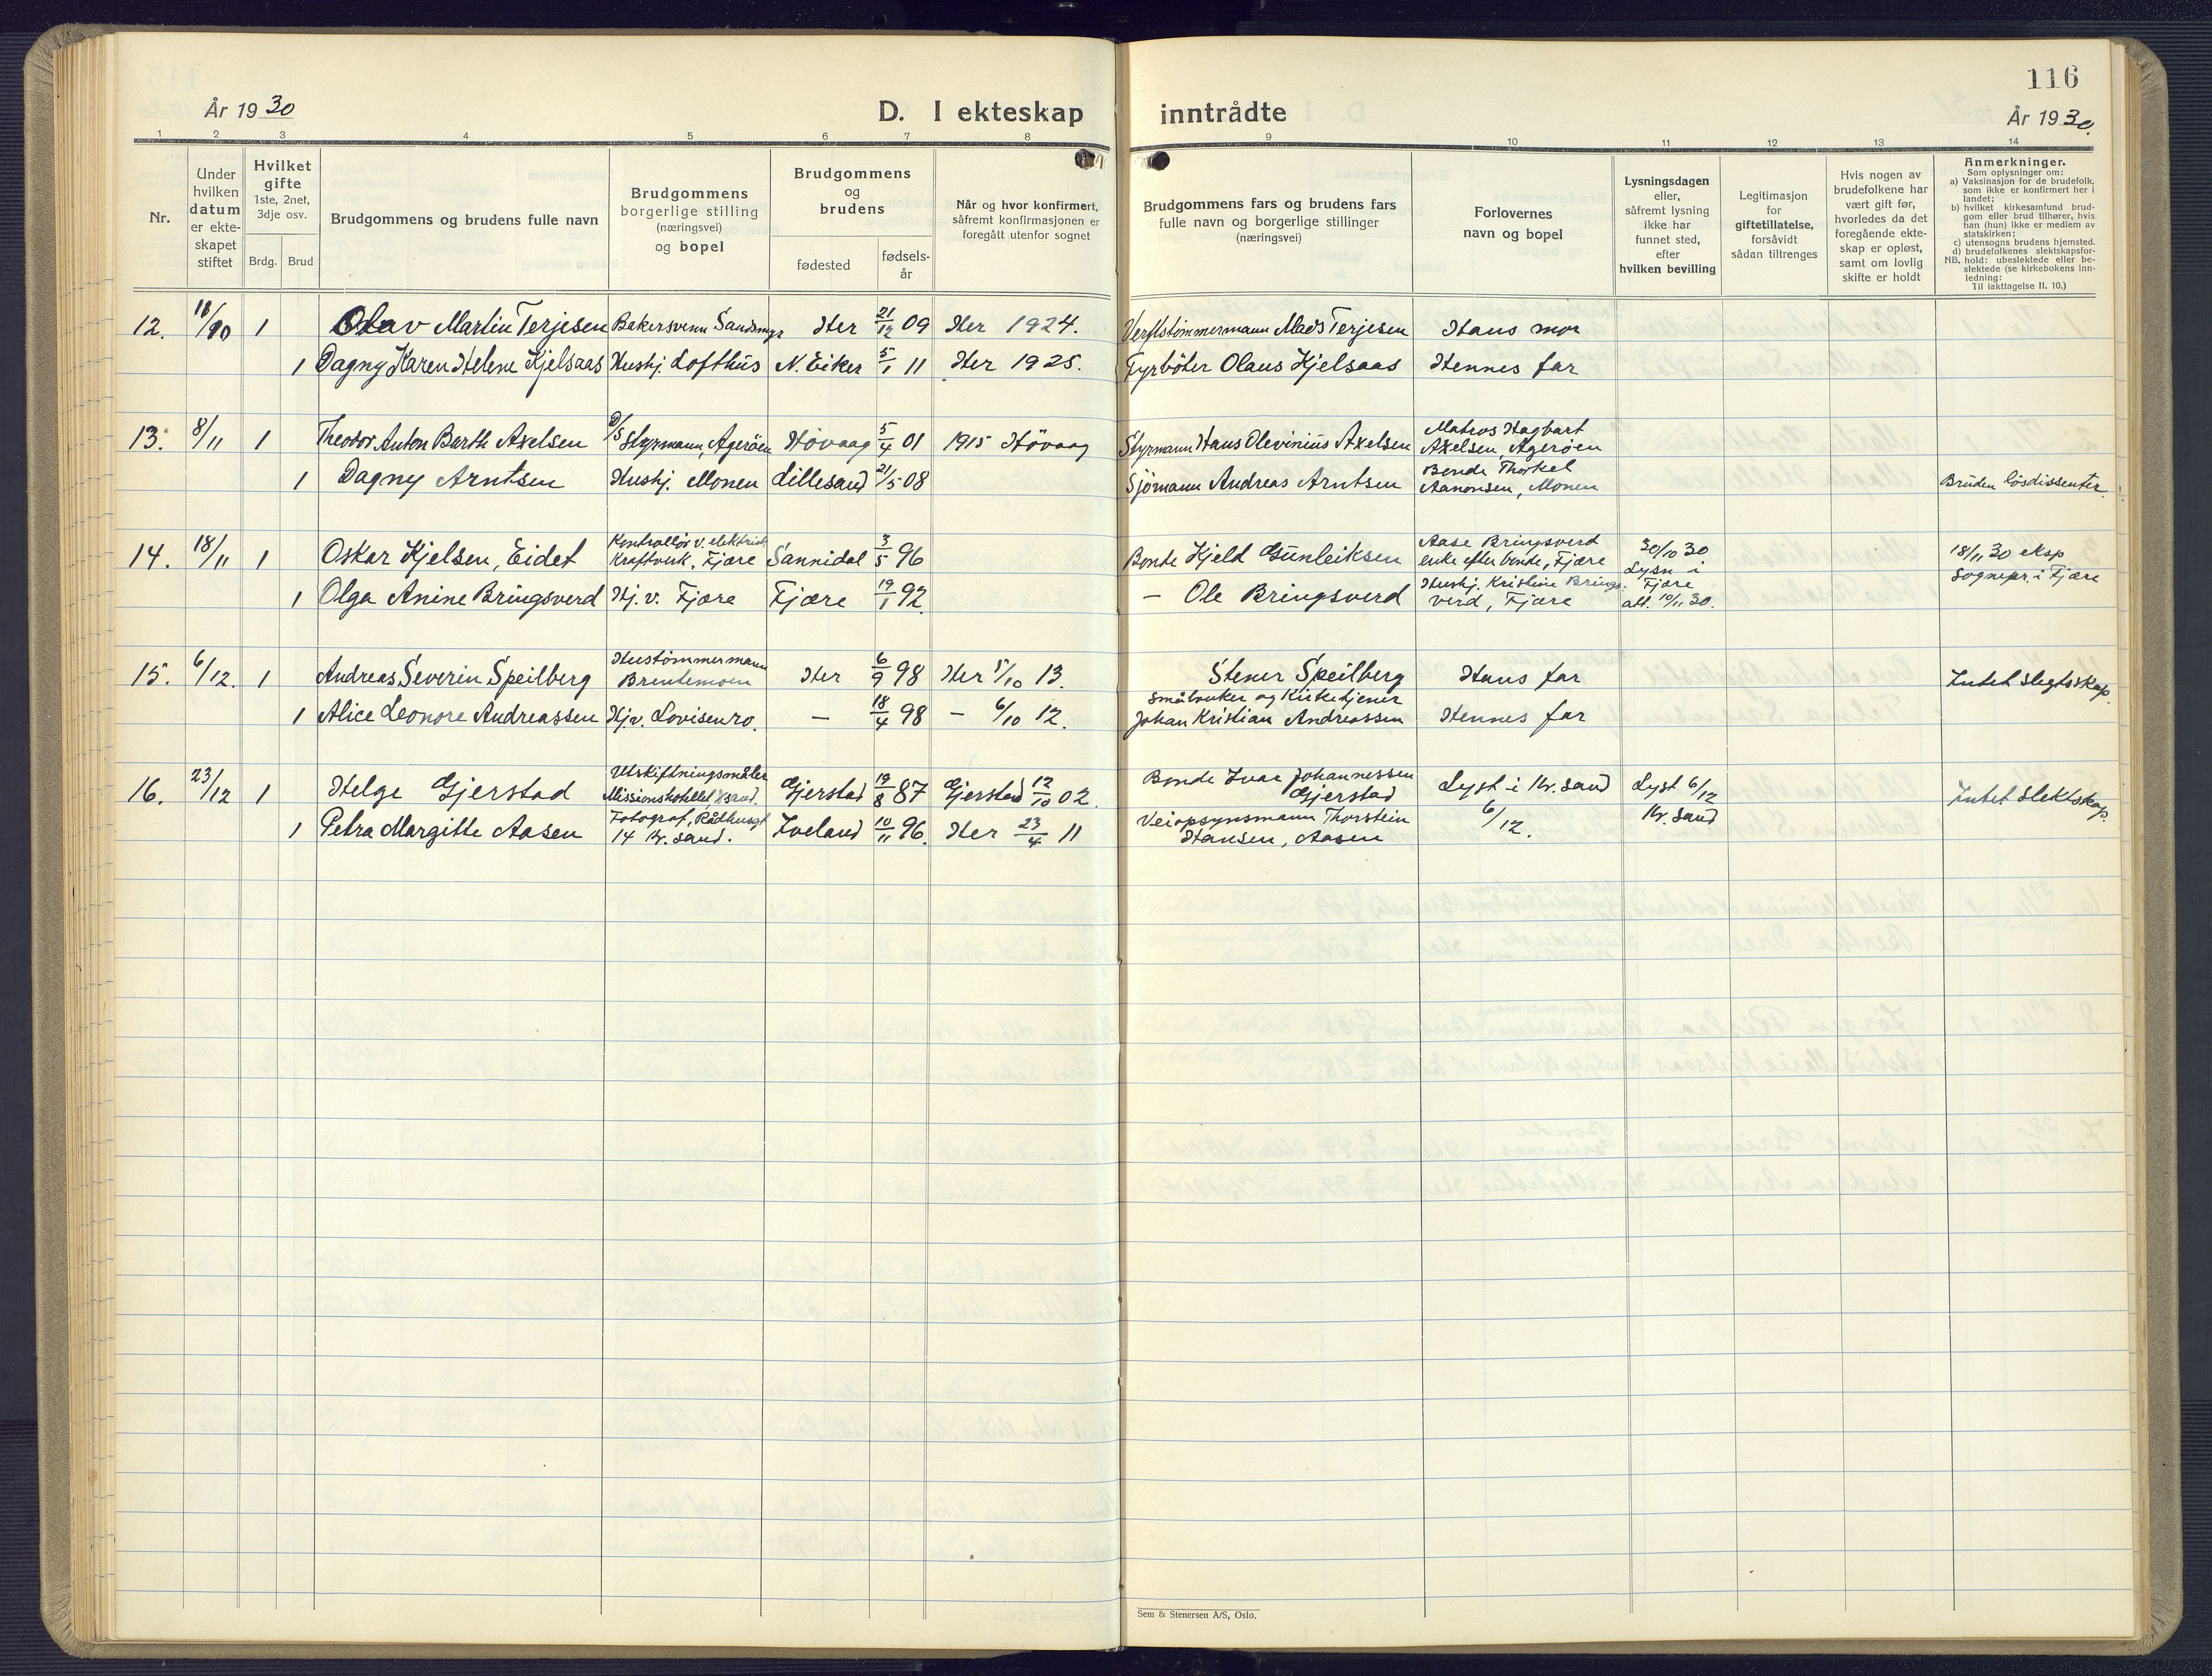 116
År 1930
D. I ekteskap inntrådte
År 1930.
1 2 3 4 5 6 7 8 9 10 11 12 13 14
Nr.
Under hvilken datum er ekte-skapet stiftet
Hvilket gifte 1ste, 2net, 3dje osv.
Brdg. Brud
Brudgommens og brudens fulle navn
Brudgommens borgerlige stilling (næringsvei) og bopel
Brudgommens og brudens
fødested
fødsels-år
Når og hvor konfirmert, såfremt konfirmasjonen er foregått utenfor sognet
Brudgommens fars og brudens fars fulle navn og borgerlige stillinger (næringsvei)
Forlovernes navn og bopel
Lysningsdagen eller, såfremt lysning ikke har funnet sted, efter hvilken bevilling
Legitimasjon for giftetillatelse, forsåvidt sådan tiltrenges
Hvis nogen av brudefolkene har vært gift før, hvorledes da det foregående ekte-skap er opløst, samt om lovlig skifte er holdt
Anmerkninger.
Som oplysninger om:
a) Vaksinasjon for de brudefolk, som ikke er konfirmert her i landet;
b) hvilket kirkesamfund brud-gom eller brud tilhører, hvis han (hun) ikke er medlem av statskirken;
c) utensogns brudens hjemsted.
d) brudefolkenes slektskapsfor-
NB. hold: ubeslektede eller be-slektede (se kirkebokens inn-ledning:
Til iakttagelse II. 10.)
12. 11/10 1 Olav Martin Terjesen Bakersvenn Sandsmyr Her 21/12 09 Her 1924. Verftstømmermann Mads Terjesen Hans mor
1 Dagny Karen Helene Kjelsaas Hushj. Lofthus N. Eiker 5/1 11 Her 1925. Fyrbøter Olaus Kjelsaas Hennes far
13. 8/11 1 Theodor Anton Barth Axelsen Styrmann, Agerøen Høvaag 5/4 01 1915 Høvaag Styrmann Hans Olevinius Axelsen Matros Hagbart Axelsen, Agerøen
1 Dagny Arntsen Hushj. Monen Lillesand 21/5 08 Sjømann Andreas Arntsen Bonde Thorkel Aanonsen, Monen Bruden løsdissenter.
14. 18/11 1 Oskar Kjelsen, Eidet Kontrollør v. elektrisk Kraftverk. Fjære Sannidal 3/5 96 Bonde Kjeld Gunleiksen Aase Bringsverd enke efter bonde, Fjære 30/10 30 Lysn i Fjære 18/11 30 eksp sognepr. i Fjære
1 Olga Anine Bringsverd Hj. v. Fjære Fjære 19/1 92. — Ole Bringsverd Hushj. Kristine Brings-verd, Fjære att. 10/11 30.
15. 6/12. 1 Andreas Severin Speilberg Hustømmermann Brentemoen Her 6/9 98 Her 5/10 13. Stener Speilberg Hans far Intet slegtsskap.
1 Alice Leonore Andreassen Hj. v. Lovisenro. — 18/4 98 — 6/10 12. Småbruker og Kirketjener Johan Kristian Andreassen Hennes far
16. 23/12 1 Helge Gjerstad Utskiftningsmåler Missionshotellet, Krsand. Gjerstad 19/8 87 Gjerstad 12/10 02. Bonde Ivar Johannessen Gjerstad Lyst i Kr. sand 6/12. Lyst 6/12 Kr. sand Intet slektskap.
1 Petra Margitte Aasen Fotograf, Rådhusgt 14 Kr. sand. Iveland 10/11 96. Her 23/4 11 Veiopsynsmann Thorstein Hansen, Aasen
Sem & Stenersen A/S, Oslo.